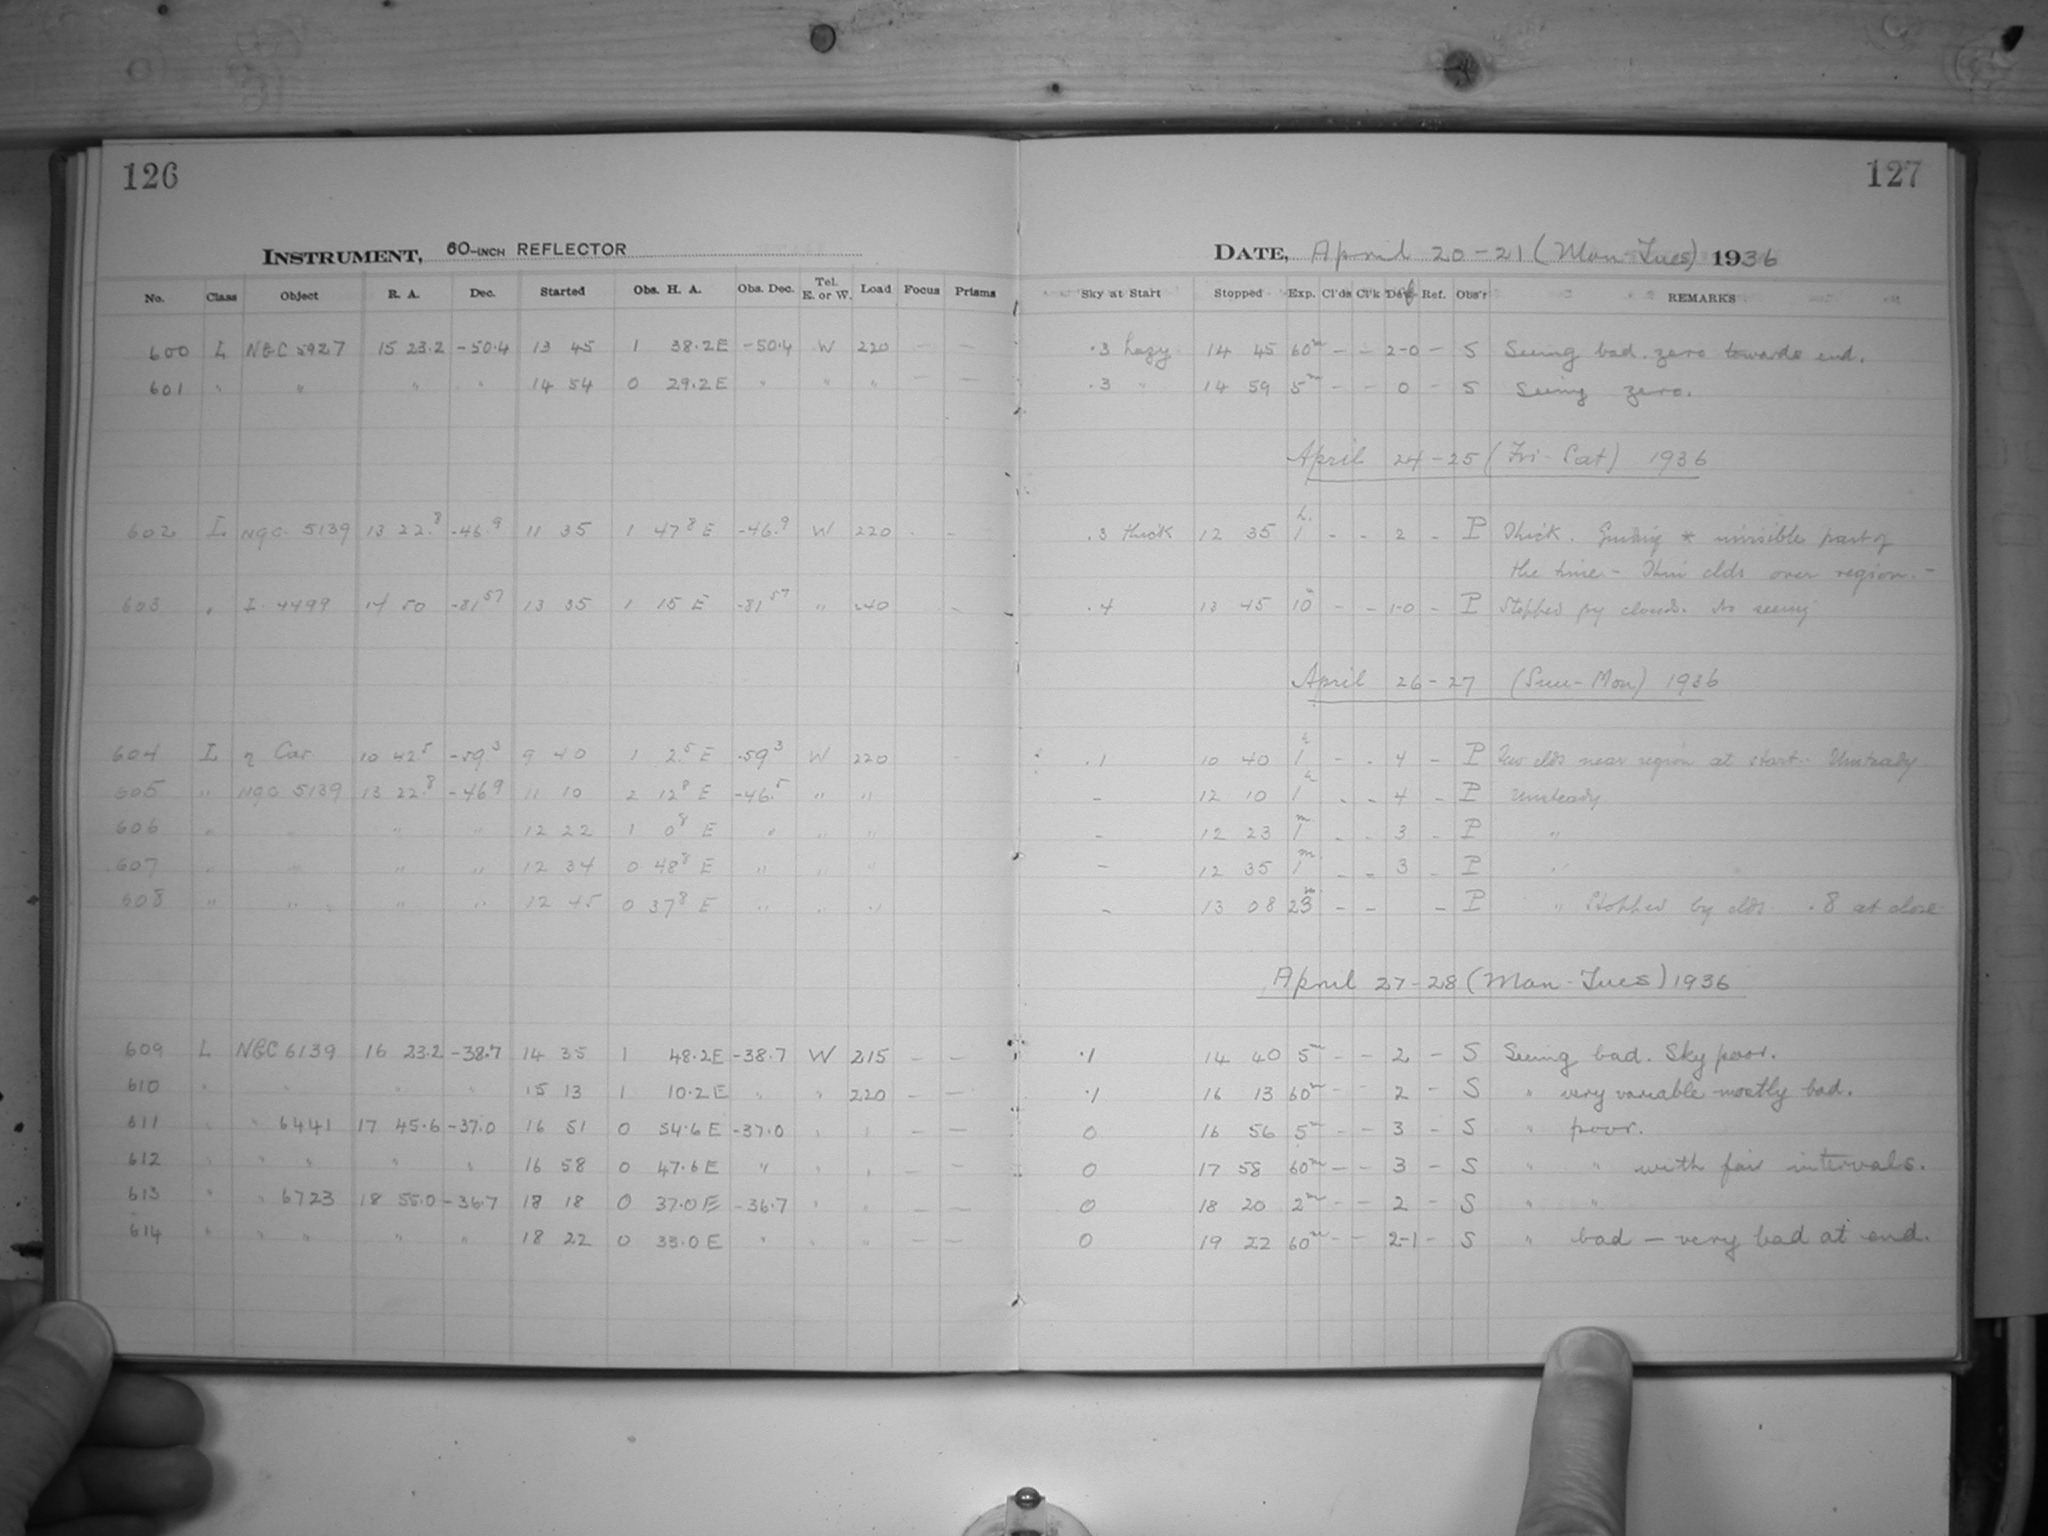 126
127
INSTRUMENT, 60-INCH REFLECTOR
DATE, April 20-21 (Mon-Tues) 1936
No. Class Object R. A. Dec. Started Obs. H. A. Obs. Dec. Tel. E. or W. Load Focus Prisms Sky at Start Stopped Exp. Cl'ds Cl'k Def Ref. Obs'r REMARKS
600 L NGC 5927 15 23.2 -50.4 13 45 1 38.2E -50.4 W 220 — — .3 hazy 14 45 60m - - 2-0 - S Seeing bad. zero towards end.
601 " " " " 14 54 0 29.2E " " " — — .3 " 14 59 5m - - 0 - S Seeing zero.
April 24-25 (Fri-Sat) 1936
602 L NGC 5139 13 22.8 -46.9 11 35 1 47.8 E -46.9 W 220 - - .3 thick 12 35 1h. - - 2 - P Thick. Guiding * invisible part of
the time - Thin clds over region. -
603 " I. 4499 14 50 -81 57 13 35 1 15 E -81 57 " 240 - .4 13 45 10m - - 1-0 - P Stopped by clouds. No seeing
April 26-27 (Sun-Mon) 1936
604 L η Car. 10 42.5 -59.3 9 40 1 2.5 E -59.3 W 220 - .1 10 40 1h - - 4 - P Few clds near region at start. - Unsteady
605 " NGC 5139 13 22.8 -46.9 11 10 2 12.8 E -46.5 " " - 12 10 1h - - 4 - P Unsteady
606 " " " " 12 22 1 0.8 E " " " - 12 23 1m - - 3 - P "
607 " " " " 12 34 0 48.8 E " " " - 12 35 1m - - 3 - P "
608 " " " " 12 45 0 37.8 E " " " - 13 08 23m - - - P " Stopped by clds .8 at close
April 27-28 (Mon-Tues) 1936
609 L NGC 6139 16 23.2 -38.7 14 35 1 48.2E -38.7 W 215 — — .1 14 40 5m - - 2 - S Seeing bad. Sky poor.
610 " " " " 15 13 1 10.2E " " 220 — — .1 16 13 60m - - 2 - S " very variable mostly bad.
611 " " 6441 17 45.6 -37.0 16 51 0 54.6 E -37.0 " " — — 0 16 56 5m - - 3 - S " poor.
612 " " " " " 16 58 0 47.6 E " " " — — 0 17 58 60m - - 3 - S " " with fair intervals.
613 " " 6723 18 55.0 -36.7 18 18 0 37.0 E -36.7 " " — — 0 18 20 2m - - 2 - S " "
614 " " " " " 18 22 0 33.0 E " " " — — 0 19 22 60m - - 2-1 - S " bad — very bad at end.